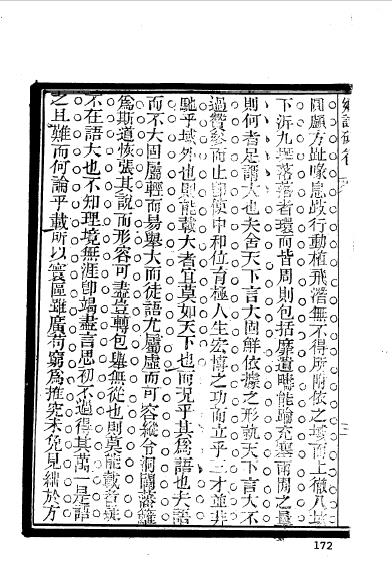 圓顱方趾喙息跂行動植飛潛無不得所附依之場而上徹八
下泝九垓落落者環而皆周則包括靡遺疇能踰充塞兩間之量
則何者足謂大也夫舍天下言大固鮮依據之形執天下言大不
過贊參而止卽使中和位育極人生宏博之功而立乎三才並非
馳乎域外也則能載大者宜莫如天下也而況乎其爲語也夫語
而不大固屬輕而易舉大而徒語尤屬虛而可容縱令洞闢籓籬
爲斯道恢張其說而形容可盡豈轉包舉無從也則莫能載者
不在語大也不知理境無涯卽竭盡言思初不過得其萬一是語
之且難而何論乎載所以寰區雖廣苟窮爲推究未免見絀於方
172